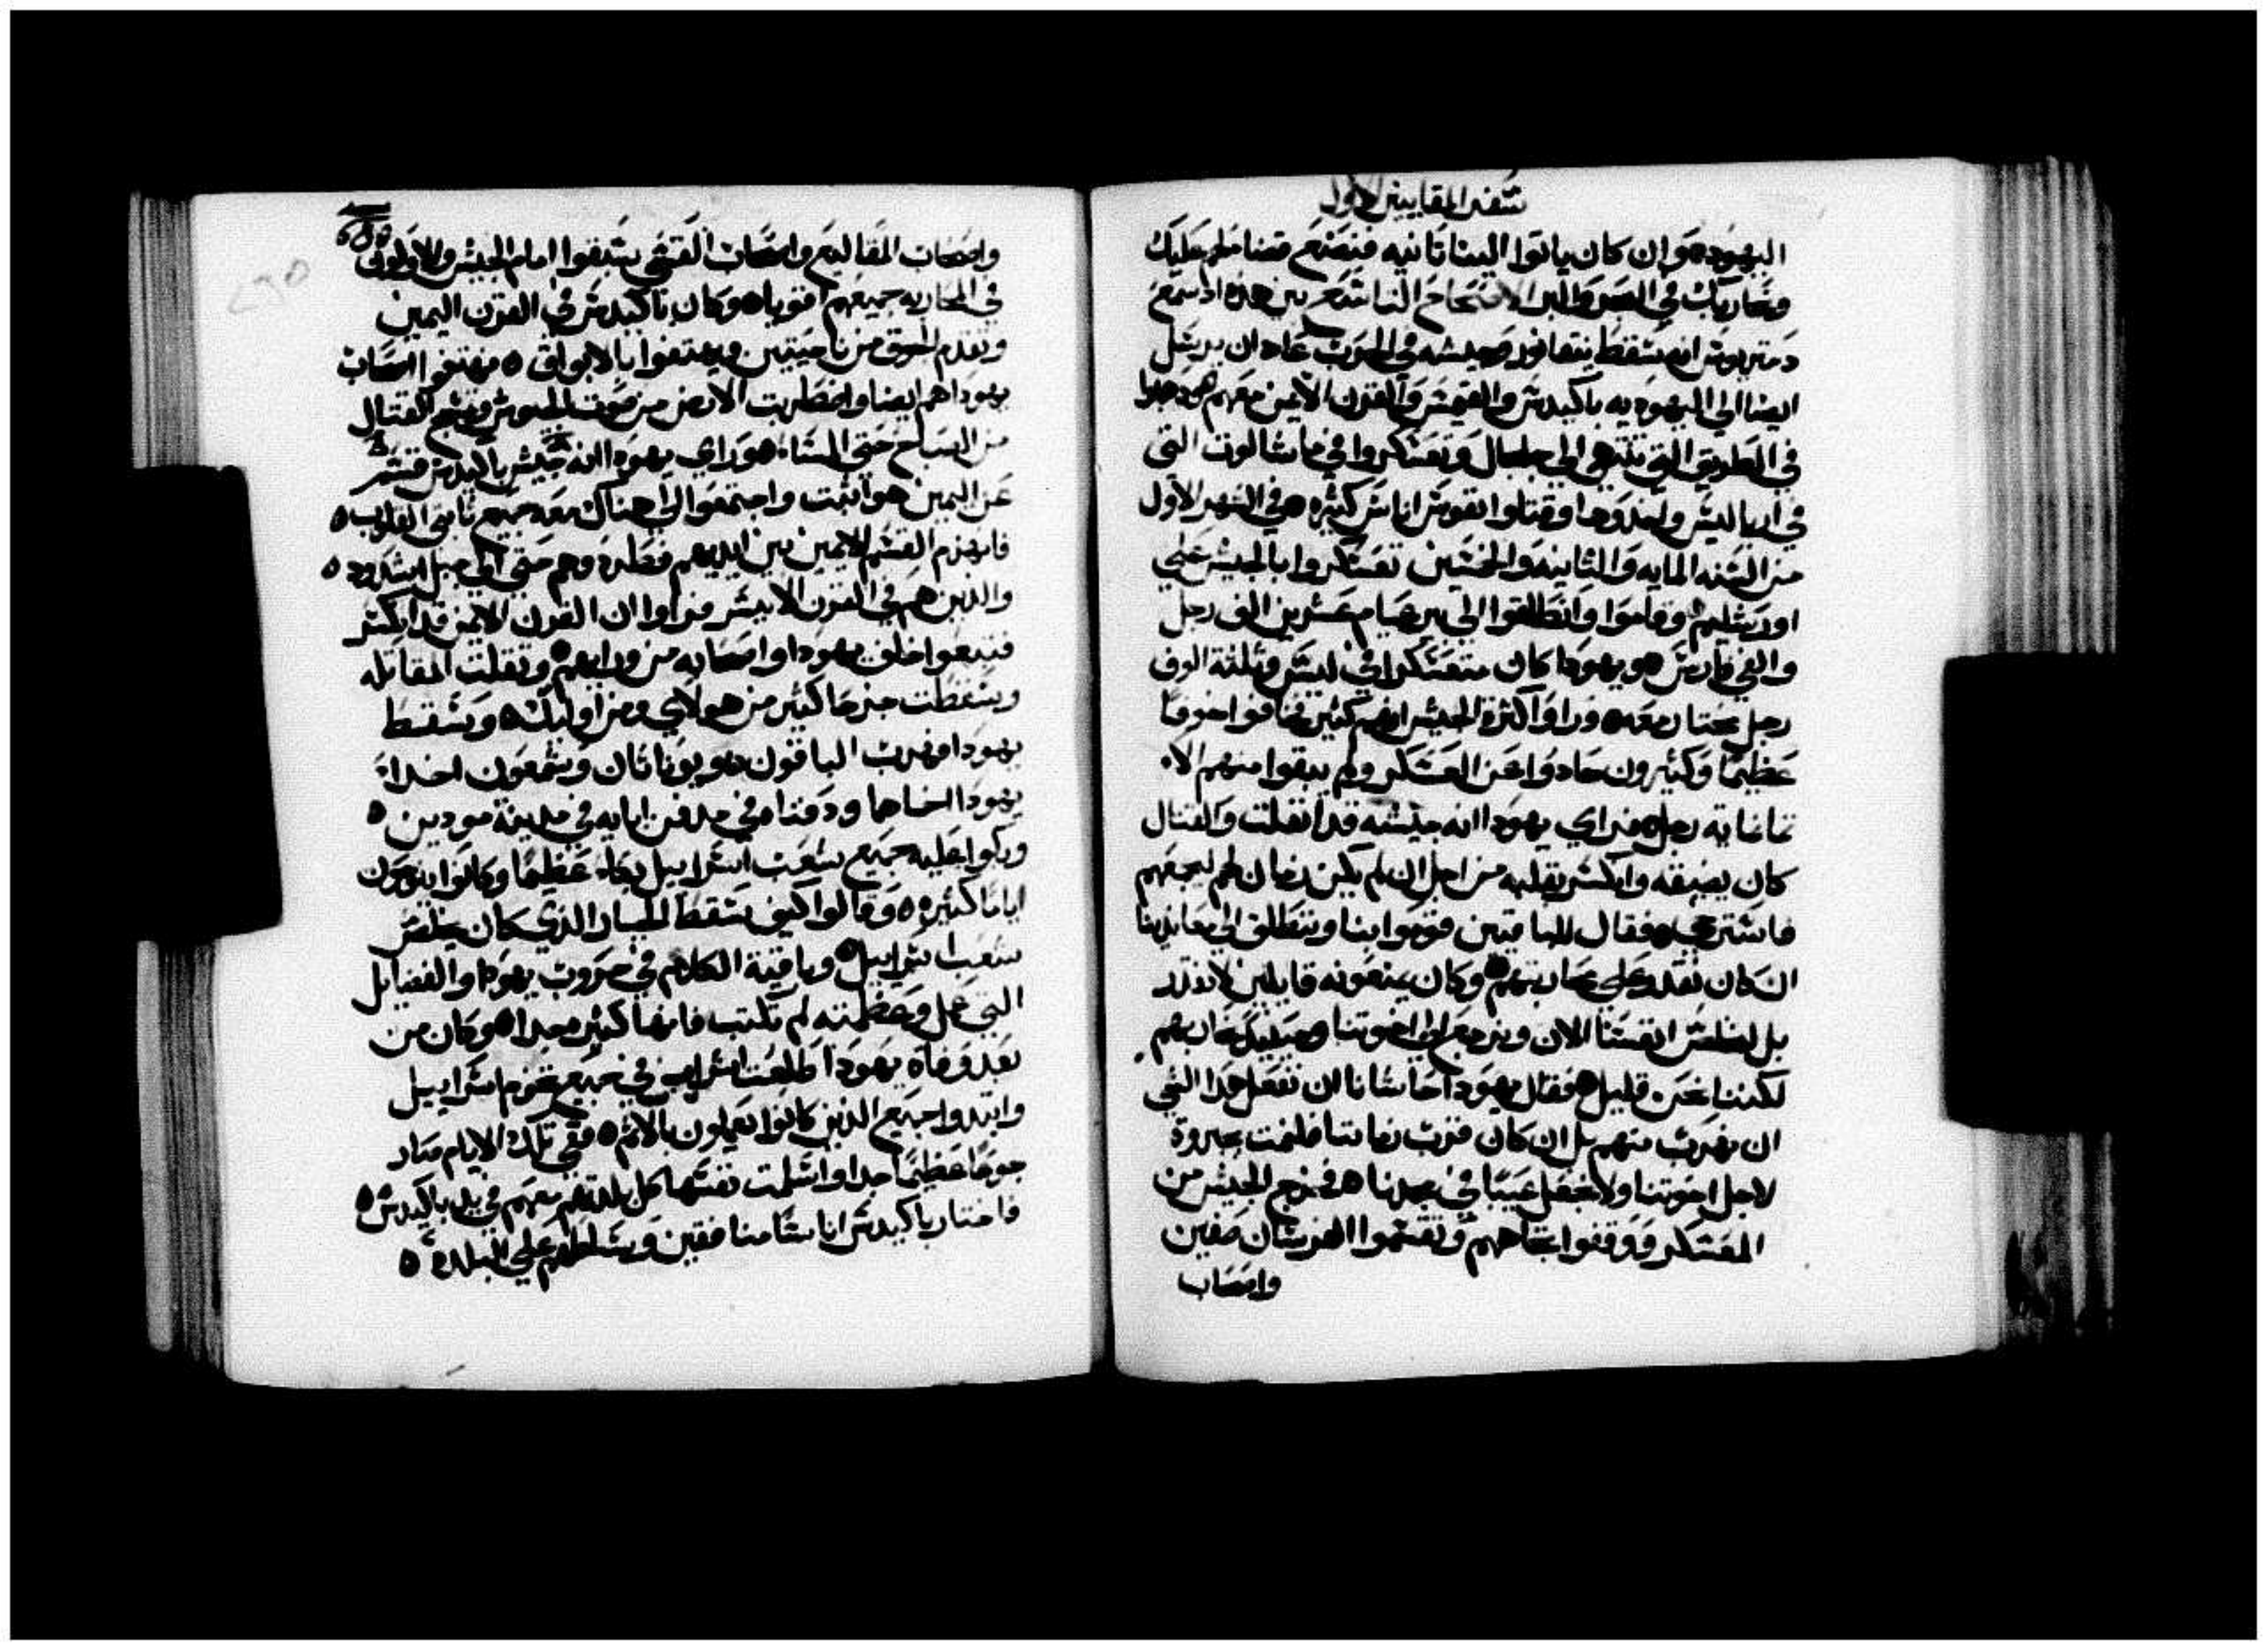 سفر المقابيين الاول
اليهوده وان كان ياتوا الينا ثانيه فنصنع قضا لهم عليك
ونحاربك في البحر والبر الاصحاح التاسع من هذه اذ سمع
دمتريوس انه سقط نيقانور وجيشه في الحرب عاد ان يرسل
ايضا الي اليهوديه باكيدس والقيمس والقرن الايمن معهم ه وجوا
في الطريق التي تنتهي الي جلجال وتعسكروا في ماشالوت التي
في اربا ليس واخذوها وقتلوا نفوس اناس كثيره ه وفي الشهر الاول
من السنه المايه والثانيه والخمسين تعسكروا بالجيش علي
اورشليم وقاموا وانطلقوا الي بير عشرين الف رجل
والفي فارس ه ويهودا كان متعسكرا في ليس وثلثة الوف
رجل مختار معه ه وراوا كثرة الجيش انهم كثير فخافوا خوفا
عظيما وكثيرون حادوا عن العسكر ولم يبقوا منهم الا
ثمانمايه رجل ه فراي يهودا انه جيشه قد انفلت والقتال
كان يضيقه وانكسر بقلبه من اجل ان لم يكن زمان لهم ليجمعهم
فاسترخي ه فقال للباقين قوموا بنا وننطلق الي معاندينا
ان كان نقدر علي محاربتهم ه وكان يمنعونه قايلين لا نقدر
بل لنخلص انفسنا الان ونرجع الي اخوتنا وحينيذ نحاربهم
لكننا نحن قليل ه فقال يهودا حاشانا ان نفعل هذا الشي
ان نهرب منهم بل ان كان قرب زماننا فلنمت بمروة
لاجل اخوتنا ولا نجعل عيبا في مجدنا ه فخرج الجيش من
المعسكر ووقفوا تجاههم وتقسموا الفرسان صفين
واصحاب
واصحاب المقاليع واصحاب القسي سبقوا امام الجيش والاولون
في المحاربه جميعهم اقويا ه وكان باكيدس في القرن اليمين
وتقدم الجوق من ناحيتين ويهتفوا بالابواق ه فهتفوا اصحاب
يهودا هم ايضا واضطربت الارض من صوت الجيوش القتال
من الصباح حتي المسا ه وراي يهودا انه جيش باكيدس قسم
عن اليمين هو اثبت واجتمعوا الي هناك معه جميع ثابتي القلوب ه
فانهزم القسم الايمن بين ايديهم وطردوهم حتي الي جبل اشدود ه
والذين هم في القرن الايسر فراوا ان القرن الايمن قد انكسر
فتبعوا خلف يهودا واصحابه من ورايهم ه وتقلت المقاتله
وسقطت جرحا كثير من هولاي ومن اوليك ه وسقط
يهودا فهرب الباقون ه ويوناثان وشمعون اخدا
يهودا اخاهما ودفناه في مدفن ابايه في مدينة مودين ه
وبكوا عليه جميع شعب اسراييل بكاء عظيما وكانوا ينوحون
اياما كثيره ه وقالوا كيف سقط الجبار الذي كان يخلص
شعب اسراييل ه وباقية الكلام في حروب يهودا والفضايل
التي عمل وعظمته لم تكتب فانها كثير جدا ه وكان من
بعد وفاه يهودا طلعت في جميع تخوم اسراييل
وابتدوا جميع الذين كانوا يعملون بالاثم ه ففي تلك الايام صار
جوعا عظيما جدا واسلمت نفسها كل بلدتهم معهم في يد باكيدس ه
فاختار باكيدس اناسا منافقين وسلطهم علي البلده ه